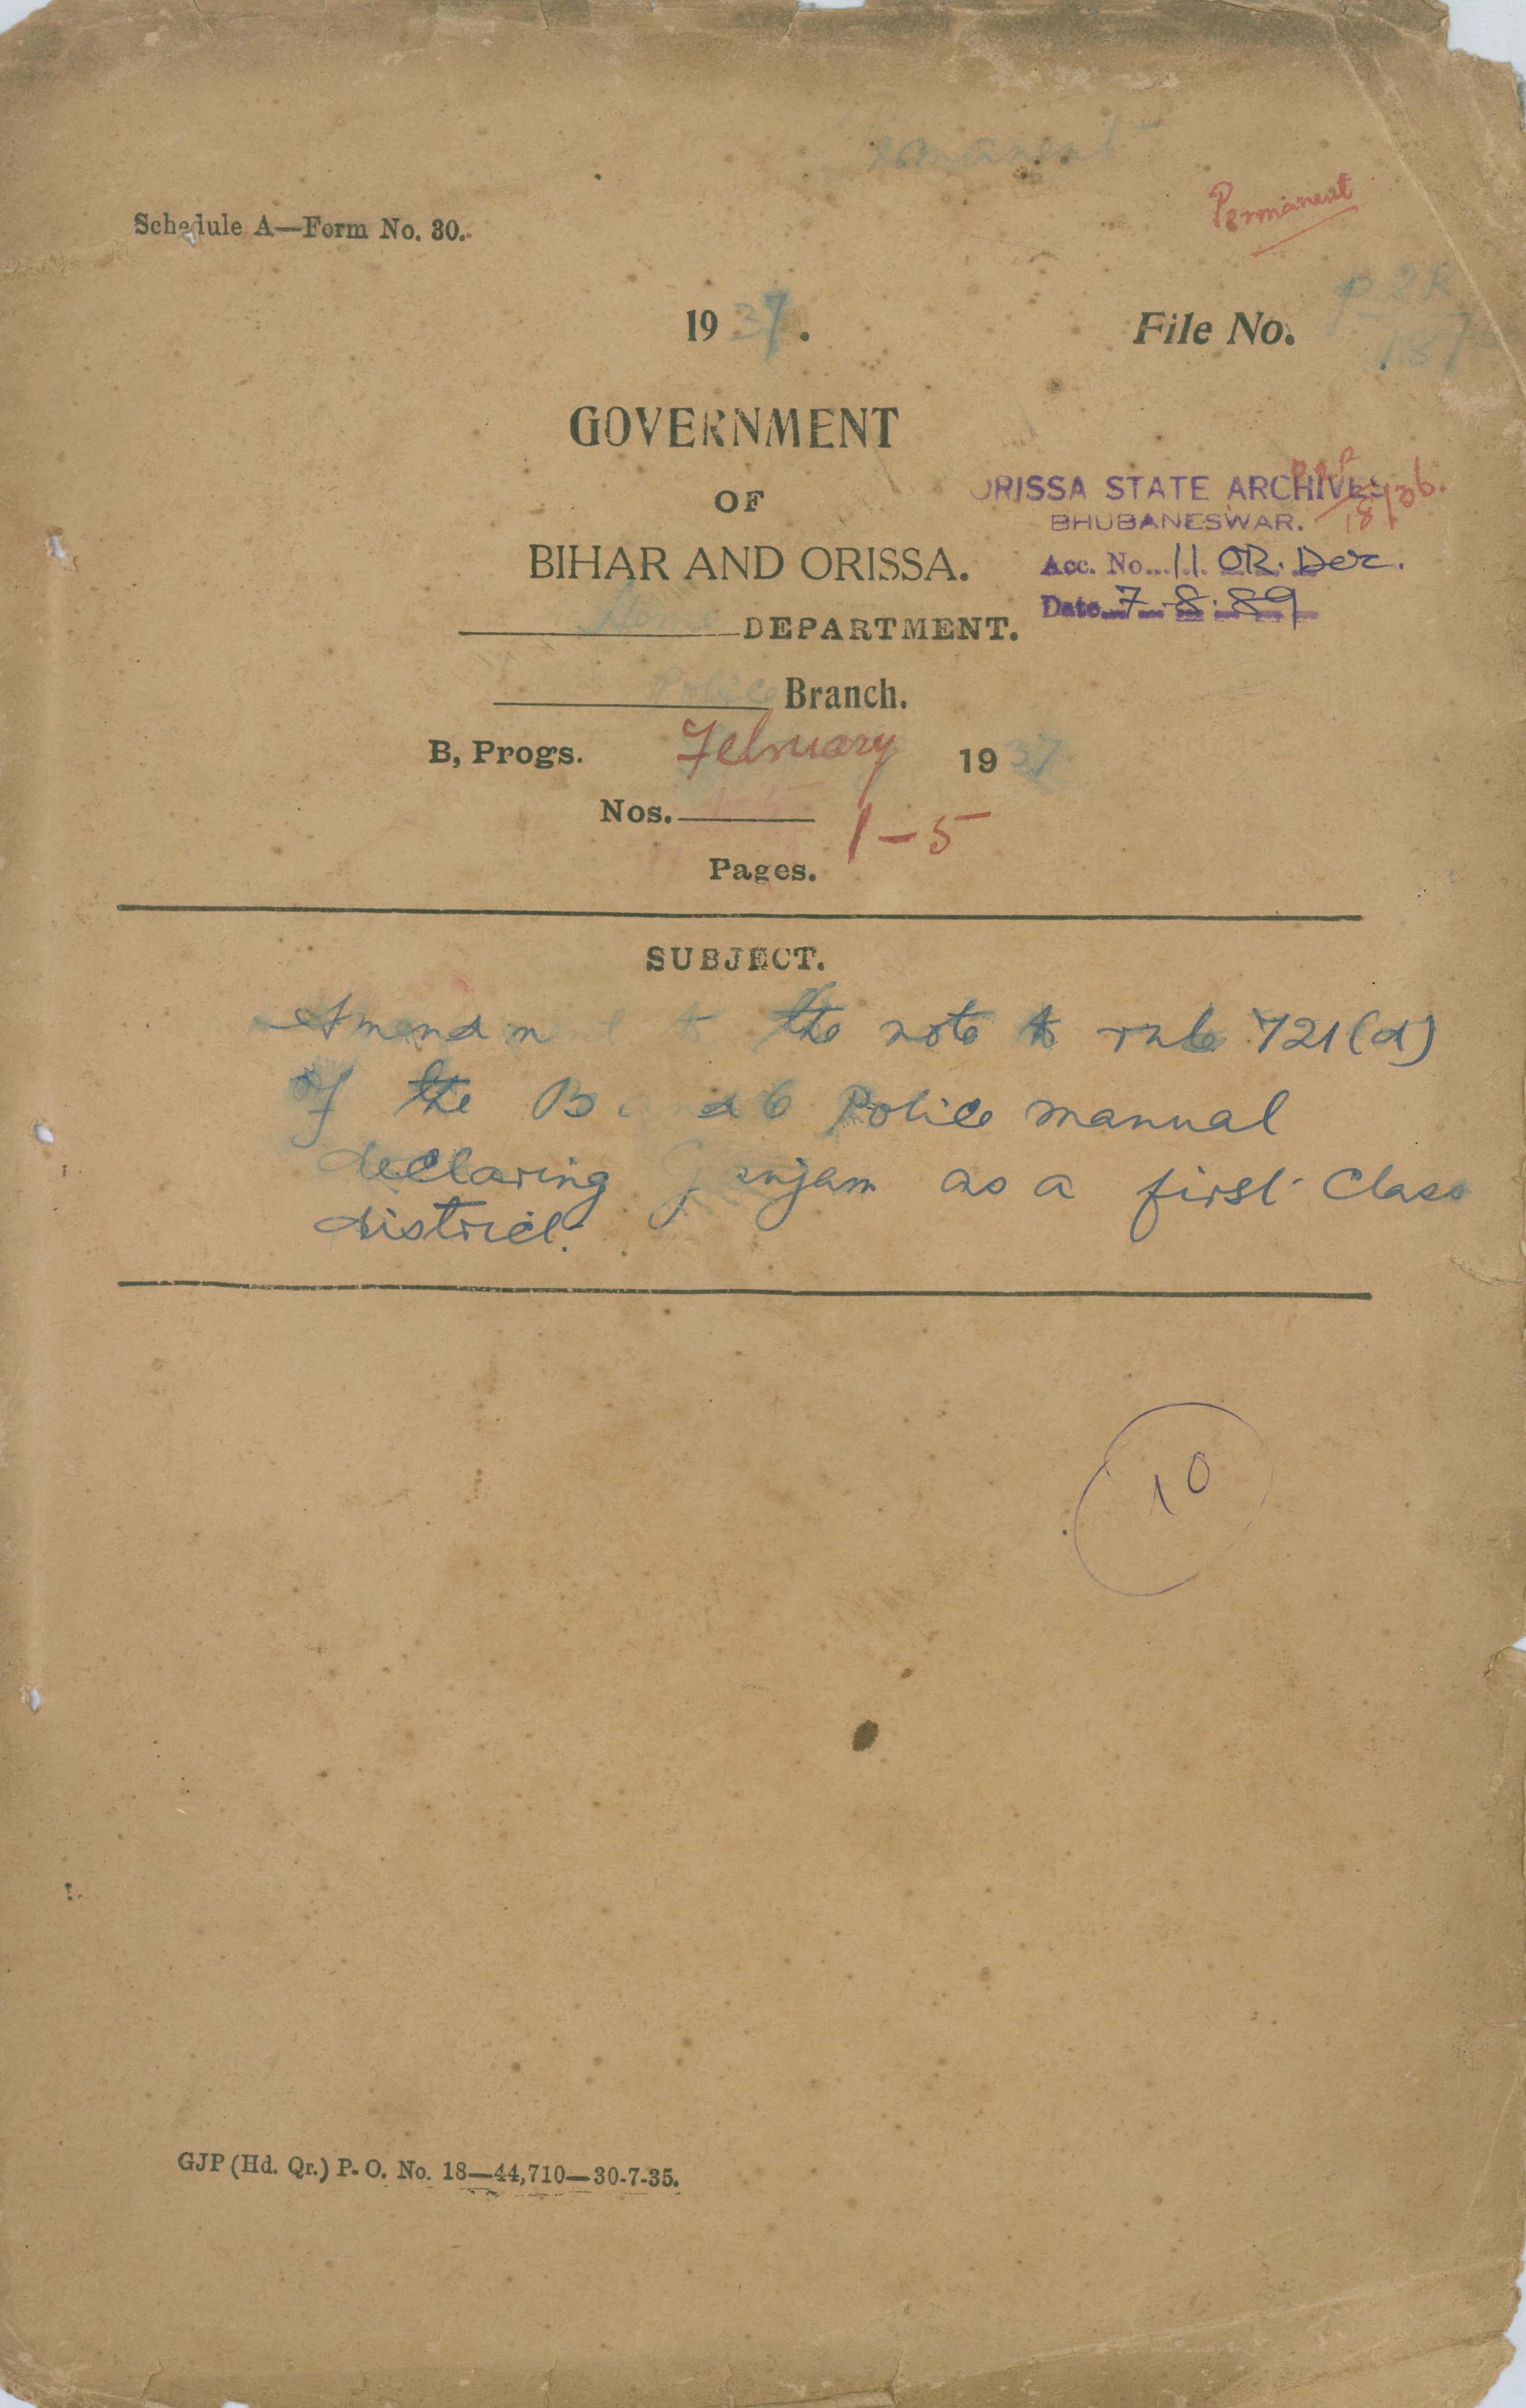 Permanent
Schedule A—Form No. 30.
1937.
File No.
GOVERNMENT
OF
BIHAR AND ORISSA.
ORISSA STATE ARCHIVES
BHUBANESWAR.
Acc. No... 11 OR. Der.
Date 7-8-89
Home DEPARTMENT.
Police Branch.
B, Progs. February 1937
Nos. 1-5
Pages.
SUBJECT.
Amendm t to the note to rule 721(d)
of the B and O Police manual
declaring Ganjam as a first class
district.
10
GJP (Hd. Qr.) P. O. No. 18—44,710—30-7-35.